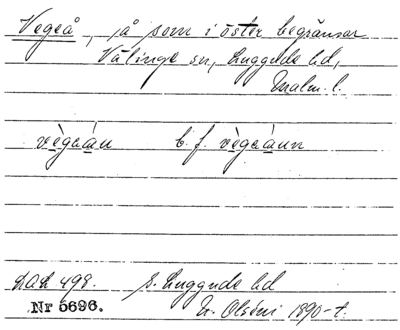 Vegeå, å som i öster begränsar
Välinge sn, Luggude hd,
Malm. l.
vègeá̀n b. f. vègeá̀nn
DAL 498. S. Luggude hd
Nr 5696. W. Olséni 1890-t.